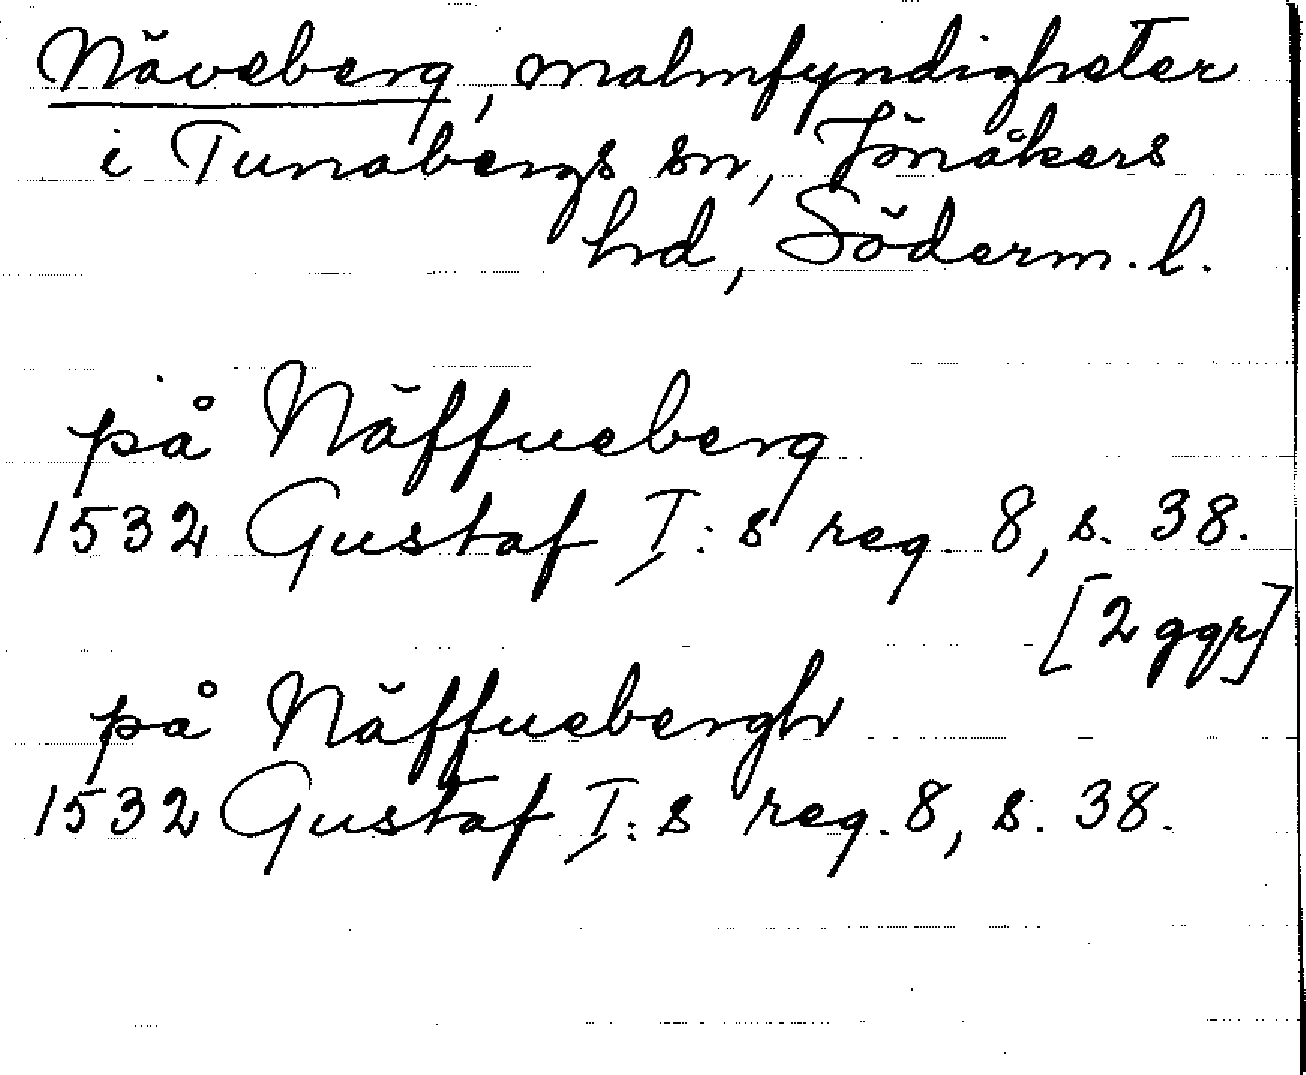 Näveberg, malmfyndigheter
i Tunabergs sn, Jönåkers
hd, Söderm. l.
på Näffueberg
1532 Gustaf I:s reg. 8, s. 38.
[2 ggr]
på Näffuebergh
1532 Gustaf I:s reg. 8, s. 38.